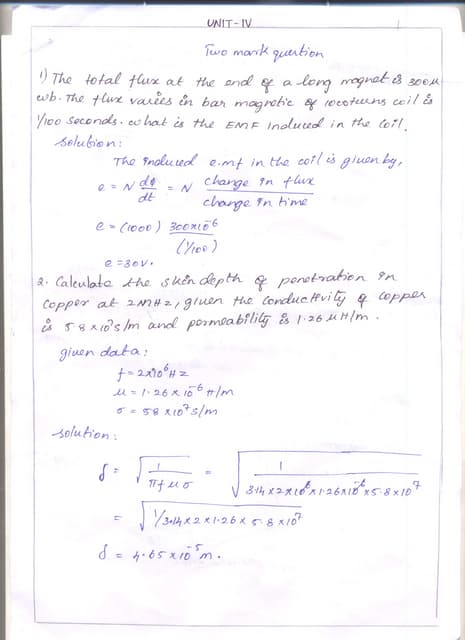 UNIT-IV
1
Two mark question
1) The total flux at the end of a long magnet is 300μ
wb. The flux varies in bar magnetic of 1000turns coil is
1/100 seconds. what is the EMF Induced in the coil.
solution:
The induced e.mf in the coil is given by,
e = N dΦ/dt = N change in flux / change in time
e = (1000) 300x10⁻⁶ / (1/100)
e = 30v.
2. Calculate the skin depth of penetration in
copper at 2MHz, given the conductivity of copper
is 5.8 x10⁷ s/m and permeability is 1.26 μ H/m.
given data:
f = 2x10⁶ Hz
μ = 1.26 x 10⁻⁶ H/m
σ = 58 x 10⁷ s/m
solution:
δ = √(1 / πfμσ) = √(1 / 3.14 x 2 x 10⁶ x 1.26x10⁻⁶ x 5.8 x 10⁷)
= √(1/3.14 x 2 x 1.26 x 5.8 x 10⁷)
δ = 4.65 x 10⁻⁵ m.